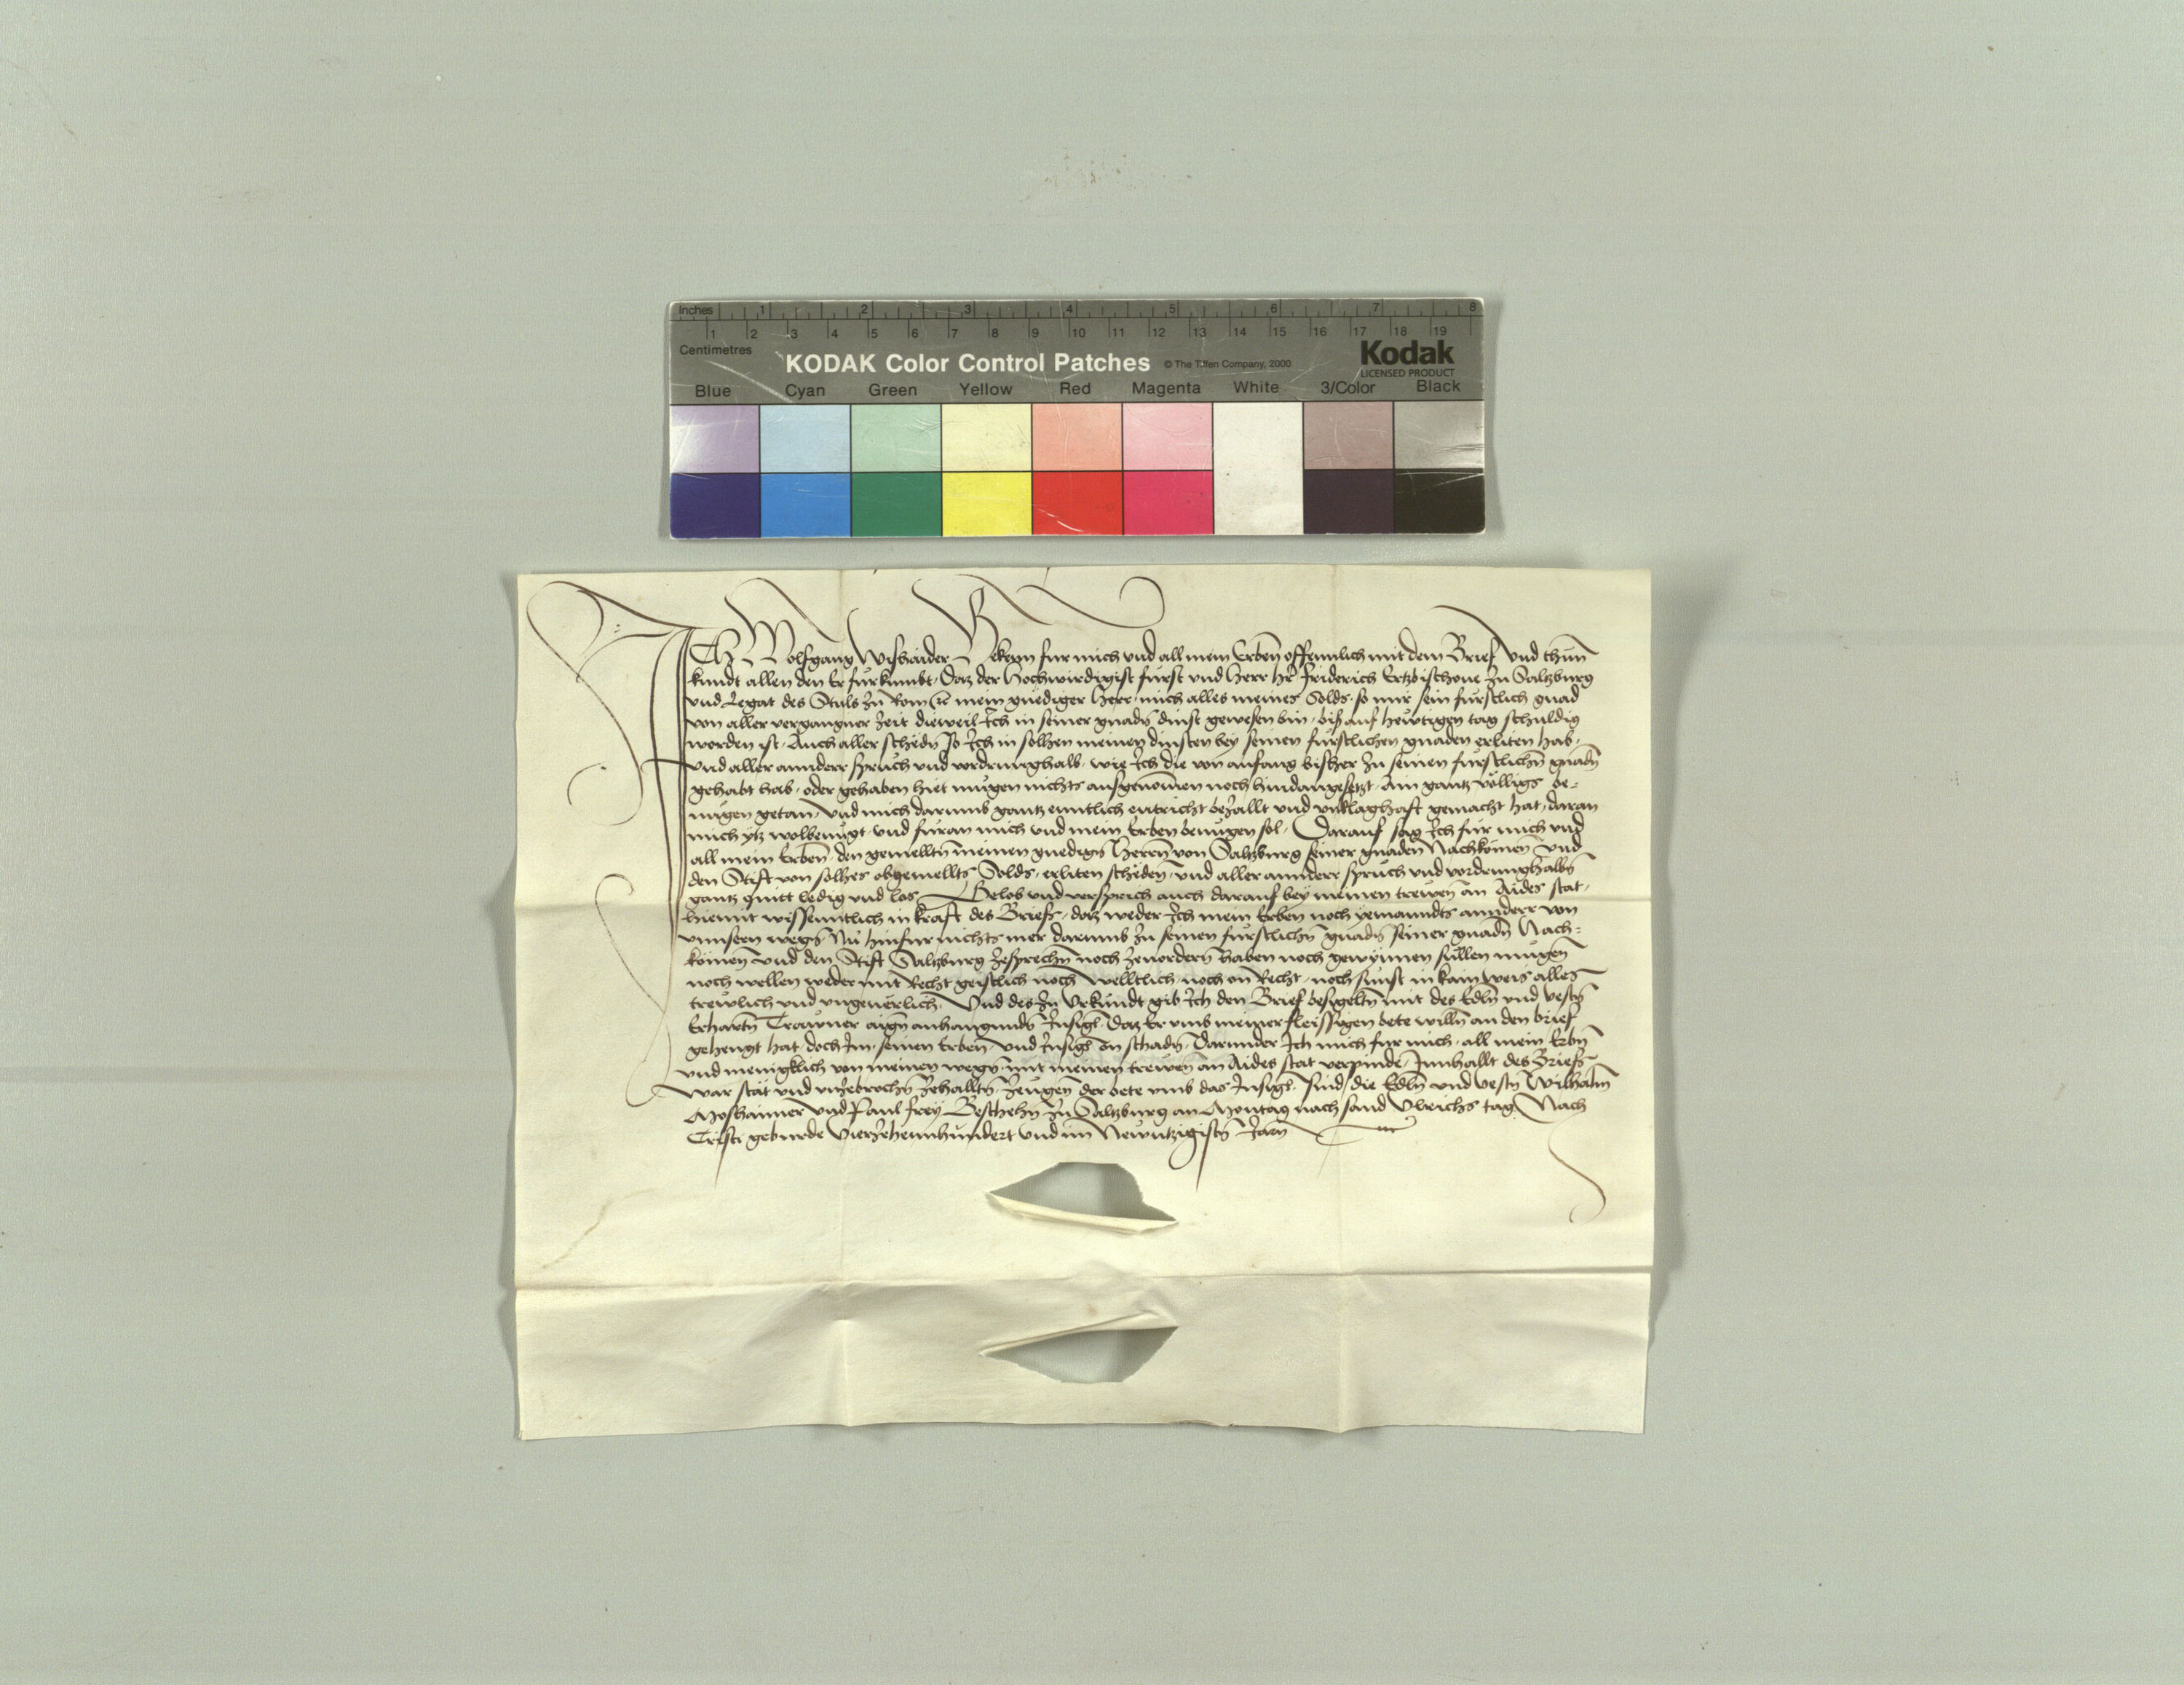 Inches 1 2 3 4 5 6 7 8
1 2 3 4 5 6 7 8 9 10 11 12 13 14 15 16 17 18 19
Centimetres
KODAK Color Control Patches © The Tiffen Company, 2000 Kodak
LICENSED PRODUCT
Blue Cyan Green Yellow Red Magenta White 3/Color Black
Ich Wolfgang Bekenn fur mich und all mein Erbñ offennlich mit dem Brief Und thun
kundt allen den Er furkumbt, Daz der Hochwirdigist furst und Herr hr̃ Friderich Ertzbischoue zu Salltzburg
und Legat des Stuls zu Rom mein gnediger Herr, mich alles meines Solds, so mir sein furstlich gnad
von aller vergangner zeit dieweil Ich in seiner gnadñ dinst gewesen bin, biß auf hewtigen tag schuldig
worden ist, Auch aller schedñ so Ich in solhen meinen dinsten bey seinen furstlichen gnaden erliten hab,
und aller annderr spruch und vordrunghalb, wie Ich die von anfang bisher zu seinen furstlichñ gnadñ
gehabt hab, oder gehaben hiet mugen nichts ausgenomen noch hindangesetzt, Ain gantz volligs be-
nugen getan, Und mich darumb gantz enntlich entricht bezallt und unklaghaft gemacht hat, daran
mich ytz wolbenugt, und furan mich und mein Erben benugen sol, Darauf sag Ich fur mich und
all mein Erben, den gemelltñ meinen gnedigñ Herrñ von Salltzburg seiner gnaden Nachkomen Und
den Stift von solhes obgemellts Solds, erliten scheden, und aller annderr spruch und vordrunghalbñ
gantz quitt ledig und los Gelob und versprich auch darauf bey meinen trewen an Aides stat,
hiemit wissenntlich in kraft des Briefs, daz weder Ich mein Erben noch yemanndts annderr von
unnsern wegñ Nu hinfur nichts mer darumb zu seinen furstlichñ gnadñ seiner gnadñ Nach-
komen und den Stift Salltzburg zesprechñ noch zeuordern haben noch gewynnen sullen mugen
noch wellen weder mit Recht geistlich noch welltlich noch on Recht, noch sunst in kain weis alles
trewlich und ungeuerlich, Und des zu Urkundt gib Ich den Brief besigeltñ mit des Edlñ und vestñ
Erhartñ Trauner aigñ anhangundñ Insigl, Daz Er umb meiner fleissigen bete willñ an den brief
gehengt hat, doch Im, seinen Erben, und Insigl on schadñ, Darunder Ich mich fur mich, all mein Erbñ
und menigklich von meinen wegñ mit meinen trewen an Aides stat verpinde, Innhallt des Briefs
War stat und unzebrochñ zehalltñ, Zeugen der bete umb das Insigl, sind die Edlñ und vestñ Wilhalm
Moshaimer und Paul Frey Beschehn zu Salltzburg an Montag nach sand Ulrichs tag, Nach
Cristi geburde Vierzehennhundert und im Newntzigistñ Jarñ